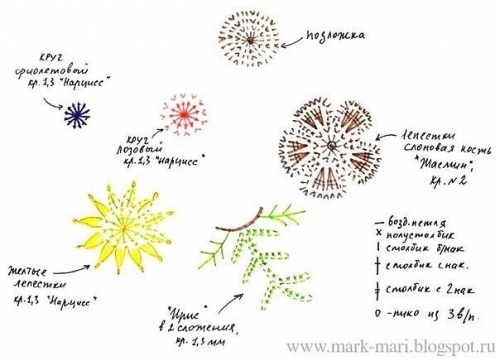 подложка
круг
фиолетовый
кр. 1,3 "Нарцисс"
круг
розовый
кр. 1,3 "Нарцисс"
лепестки
слоновая кость
"Жасмин",
кр. N2
— возд. петля
× полустолбик
столбик б/нак.
столбик с нак.
столбик с 2 нак.
о - пико из 3 в/п.
желтые
лепестки
кр. 1,3 "Нарцисс"
"Ирис"
в 2 сложения,
кр. 1,3 мм
www.mark-mari.blogspot.ru